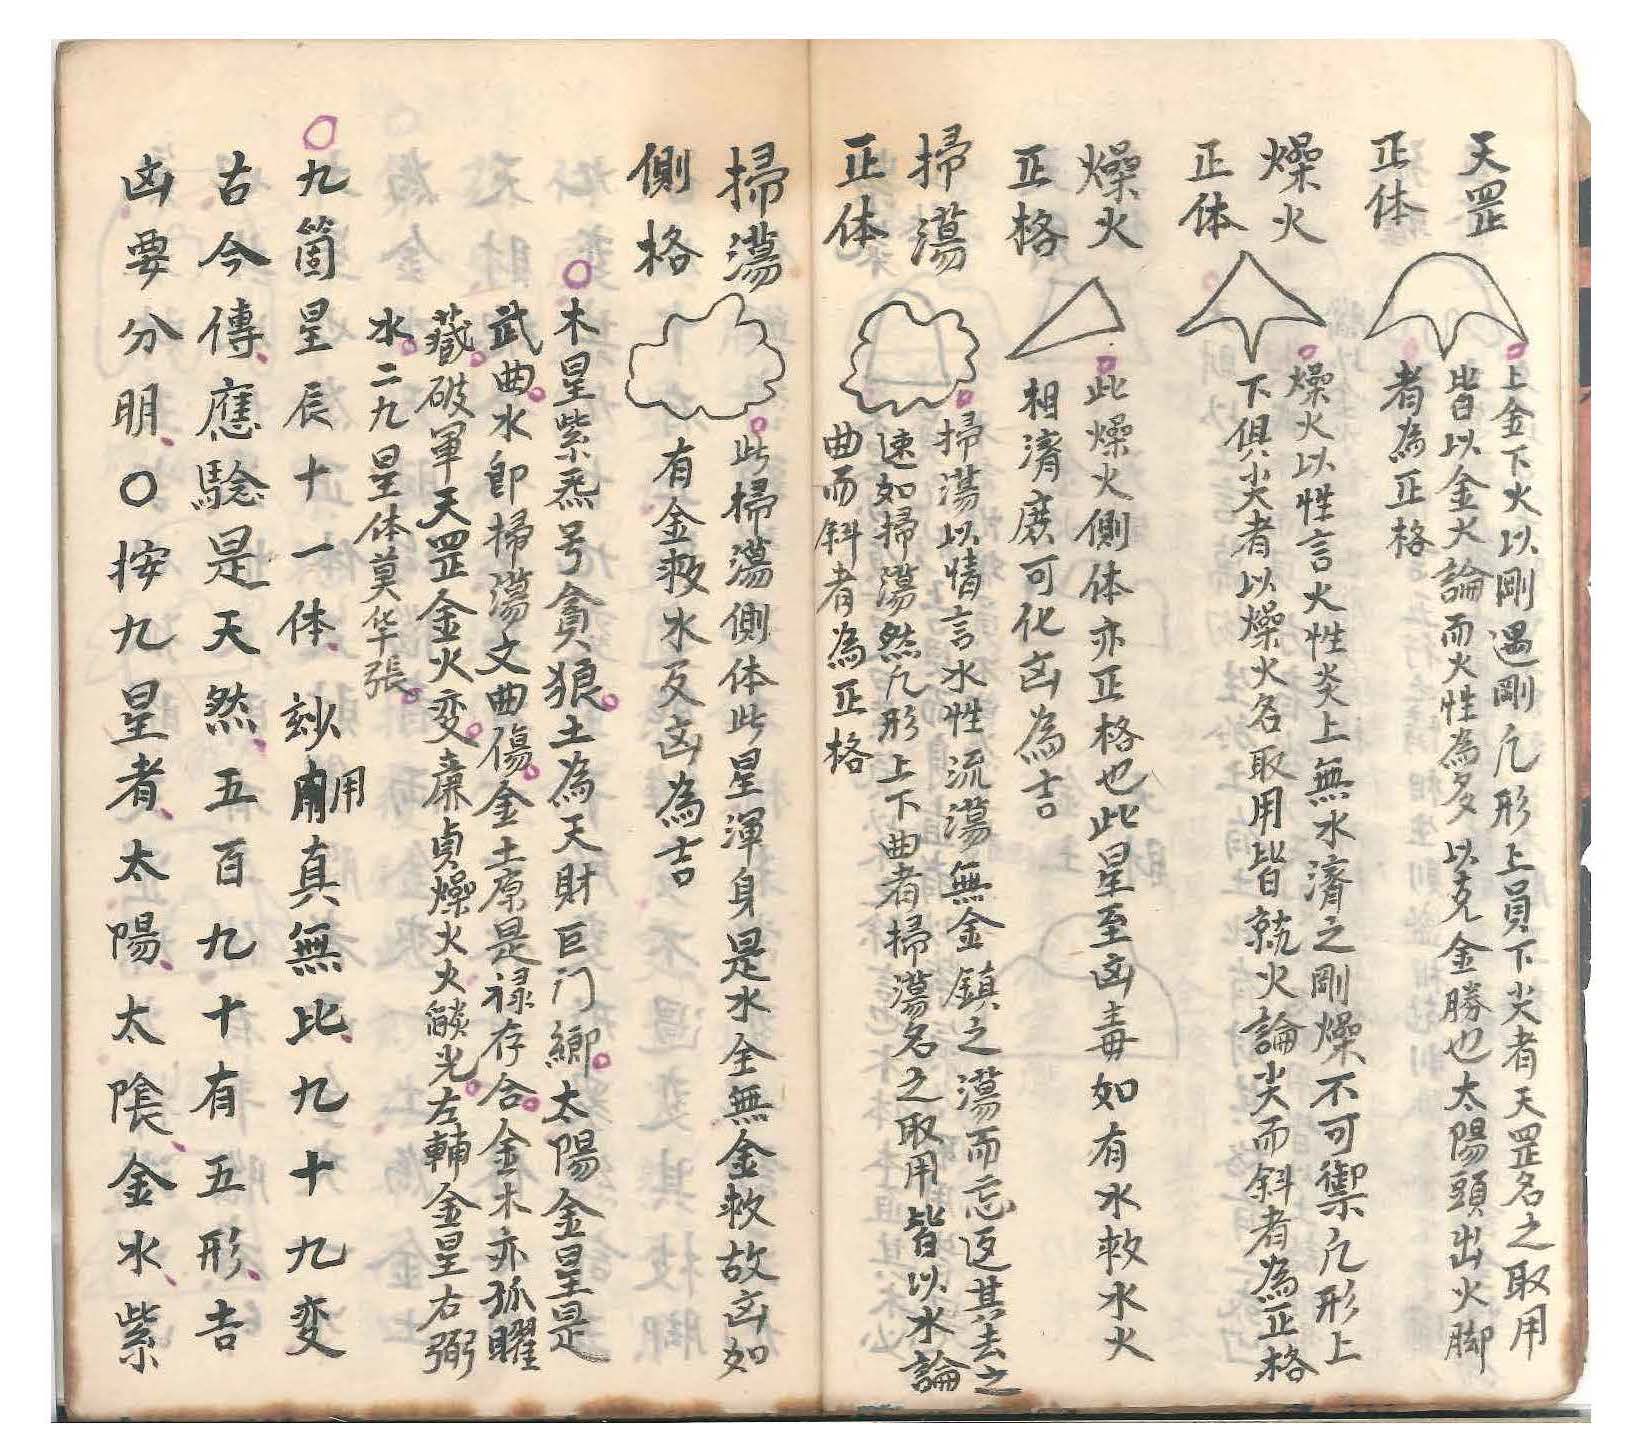 天罡
正体
上金下火以剛遇剛凢形上員下尖者天罡名之取用
皆以金火論而火性為多以克金勝也太陽頭出火脚
者為正格
燥火
正体
燥火以性言火性炎上無水濟之剛燥不可禦凢形上
下俱尖者以燥火名取用皆就火論尖而斜者為正格
燥火
正格
此燥火側体亦正格也此星至凶毒如有水救水火
相濟庶可化凶為吉
掃蕩
正体
掃蕩以情言水性流蕩無金鎮之蕩而忘返其去之
速如掃蕩然凢形上下曲者掃蕩名之取用皆以水論
曲而斜者為正格
掃蕩
側格
此掃蕩側体此星渾身是水全無金救故凶如
有金救水反凶為吉
〇木星紫炁号貪狼土為天財巨门鄉太陽金星是
武曲水即掃蕩文曲傷金土原是禄存合金木亦孤曜
藏破軍天罡金火变廉貞燥火火燄光左輔金星右弼
水二九星体莫华張
〇九箇星辰十一体玅用真無比九十九变
古今傳應騐是天然五百九十有五形吉
凶要分明〇按九星者太陽太陰金水紫